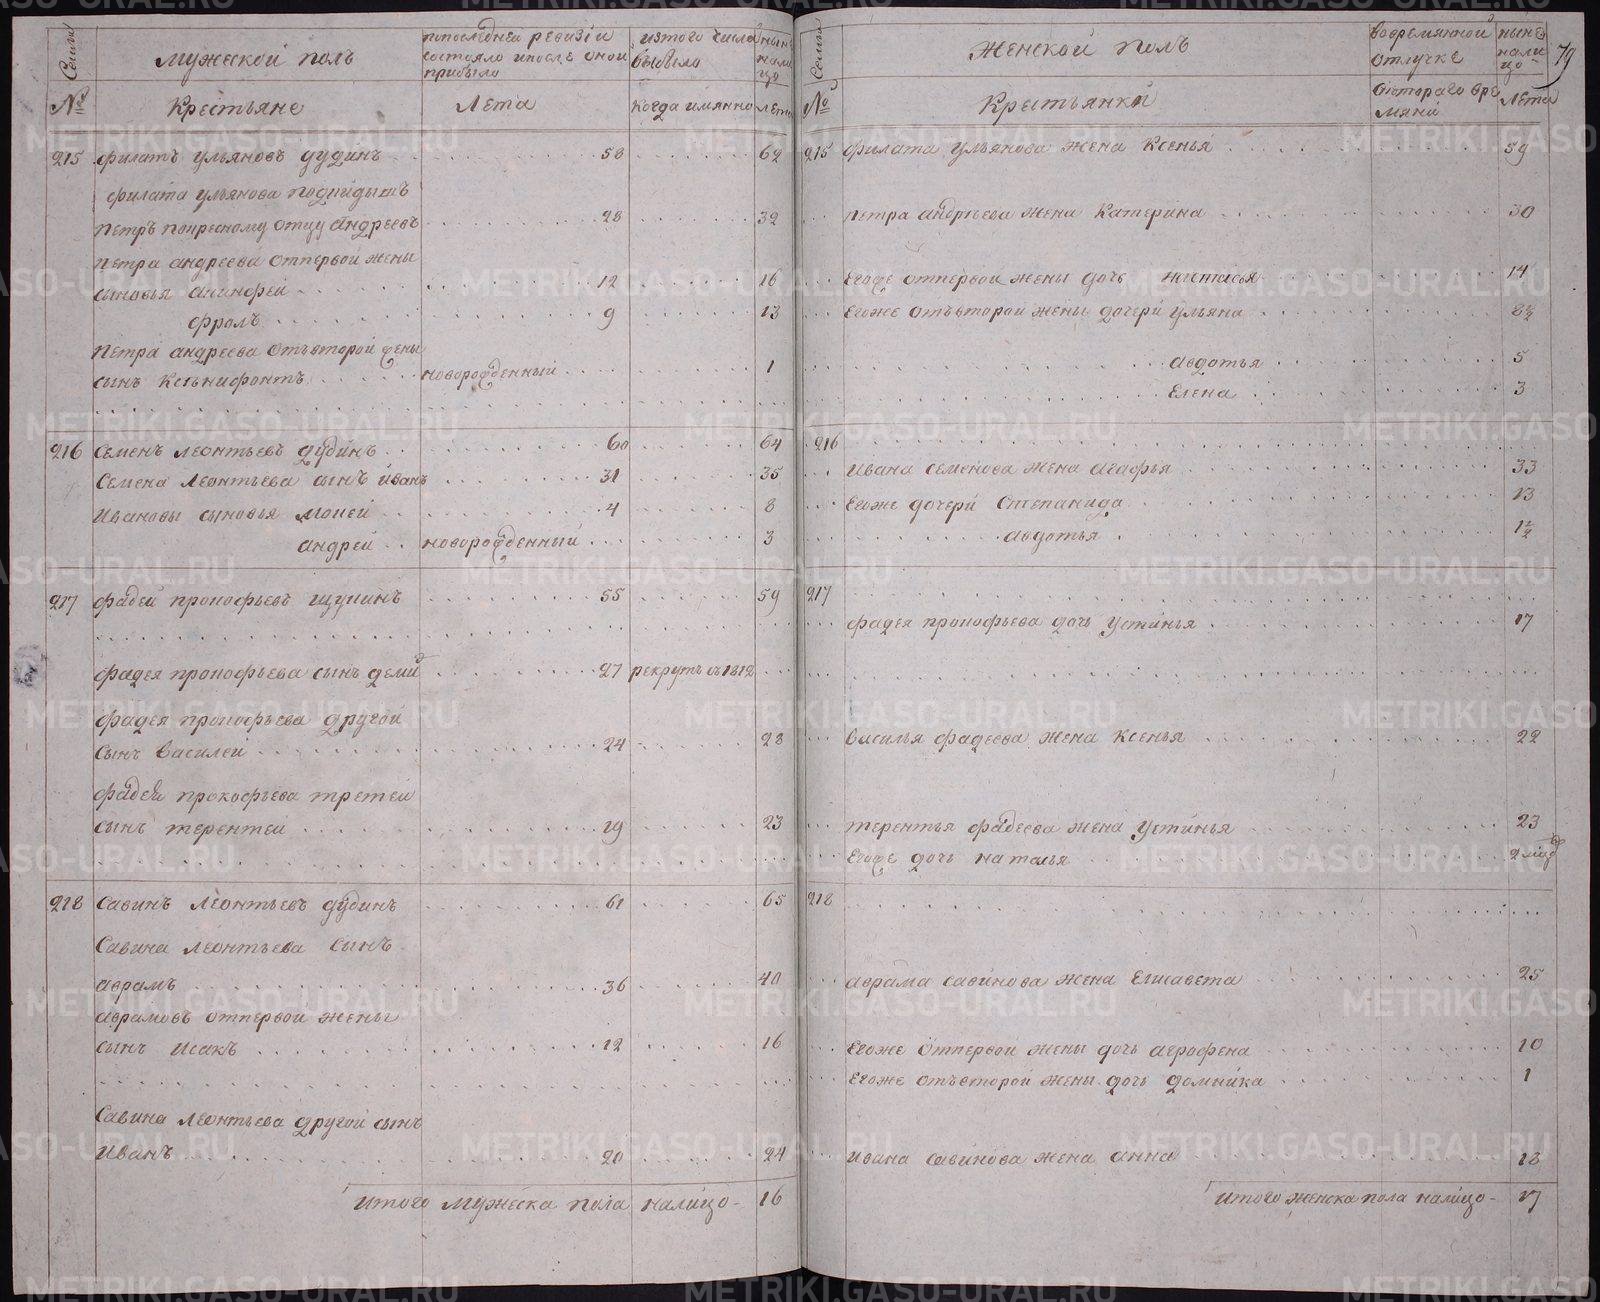 Семьи
Мужеской полъ
попоследней ревизіи
состояло ипосле оной
прибыло
изтого числа
выбыло
ныне
нали
цо
№
Крестьяне
Лета
когда имянно
лета
215 филатъ ульяновъ дудинъ 58 62
филата ульянова подкидышъ
петръ покресному отцу андреевъ 28 32
петра андреева отпервой жены
сыновья акинфей 12 16
фролъ 9 13
петра андреева отъвторой жены
сынъ Ксенифонтъ новорожденный 1
216 Семенъ леонтьевъ дудинъ 60 64
Семена леонтьева сынъ иванъ 31 35
Ивановы сыновья мокей 4 8
андрей новорожденный 3
217 фадей прокофьевъ щукинъ 55 59
фадея прокофьева сынъ демид 27 рекрутъ въ 1812
фадея прокофьева другой
сынъ василей 24 28
фадея прокофьева третей
сынъ терентей 19 23
218 Савинъ леонтьевъ дудинъ 61 65
Савина леонтьева сынъ
аврамъ 36 40
аврамовъ отпервой жены
сынъ исакъ 12 16
Савина леонтьева другой сынъ
иванъ 20 24
Итого мужеска пола налицо - 16
Семьи
Женской полъ
вовремянной
отлучке
ныне
нали
цо
79
№
Крестьянки
скотораго вре
мяни
Лета
215 филата ульянова жена Ксенья 59
петра андреева жена Катерина 30
Егоже отпервой жены дочь настасья 14
Егоже отъвторой жены дочери ульяна 8½
авдотья 5
Елена 3
216
ивана семенова жена агафья 33
Егоже дочери Степанида 13
авдотья 1½
217
фадея прокофьева дочь устинья 17
василья фадеева жена ксенья 22
терентья фадеева жена устинья 23
Егоже дочь наталья
218
аврама савинова жена Елисавета 25
Егоже отпервой жены дочь аграфена 10
Егоже отъвторой жены дочь домника 1
ивана савинова жена анна 18
Итого женска пола налицо - 17
METRIKI.GASO-URAL.RU